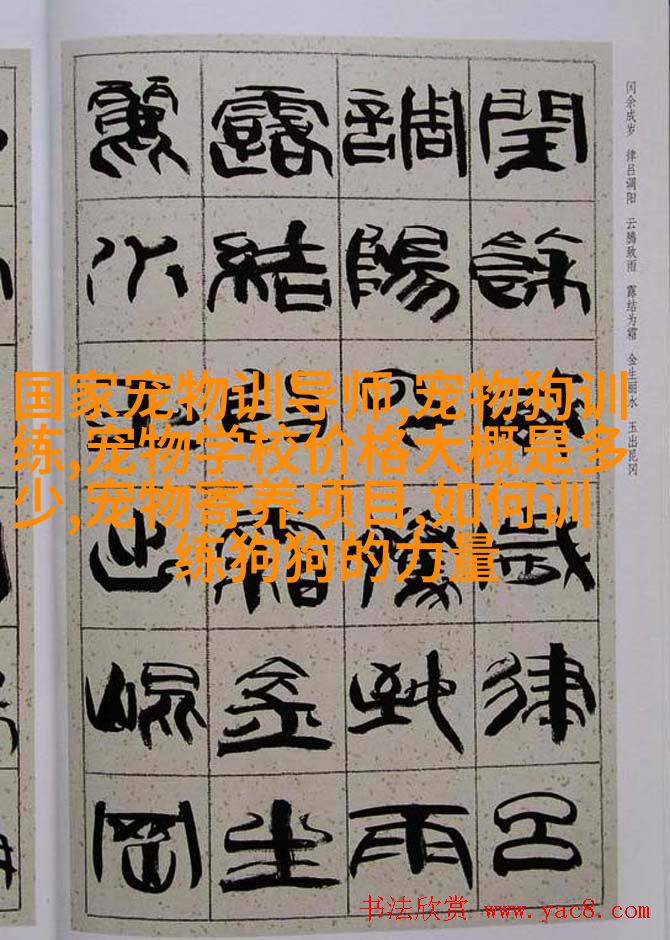 国家宠物训导师,宠物狗训
练,宠物学校价格大概是多
少,宠物寄养项目,如何训
练狗狗的力量
闰余成岁 律吕调阳 云腾致雨 露结为霜 金生丽水 玉出昆冈
閏餘成歲律呂
調陽雲騰致雨
露結為霜金生
麗水玉出崐岡
书法欣赏 www.yac8.com